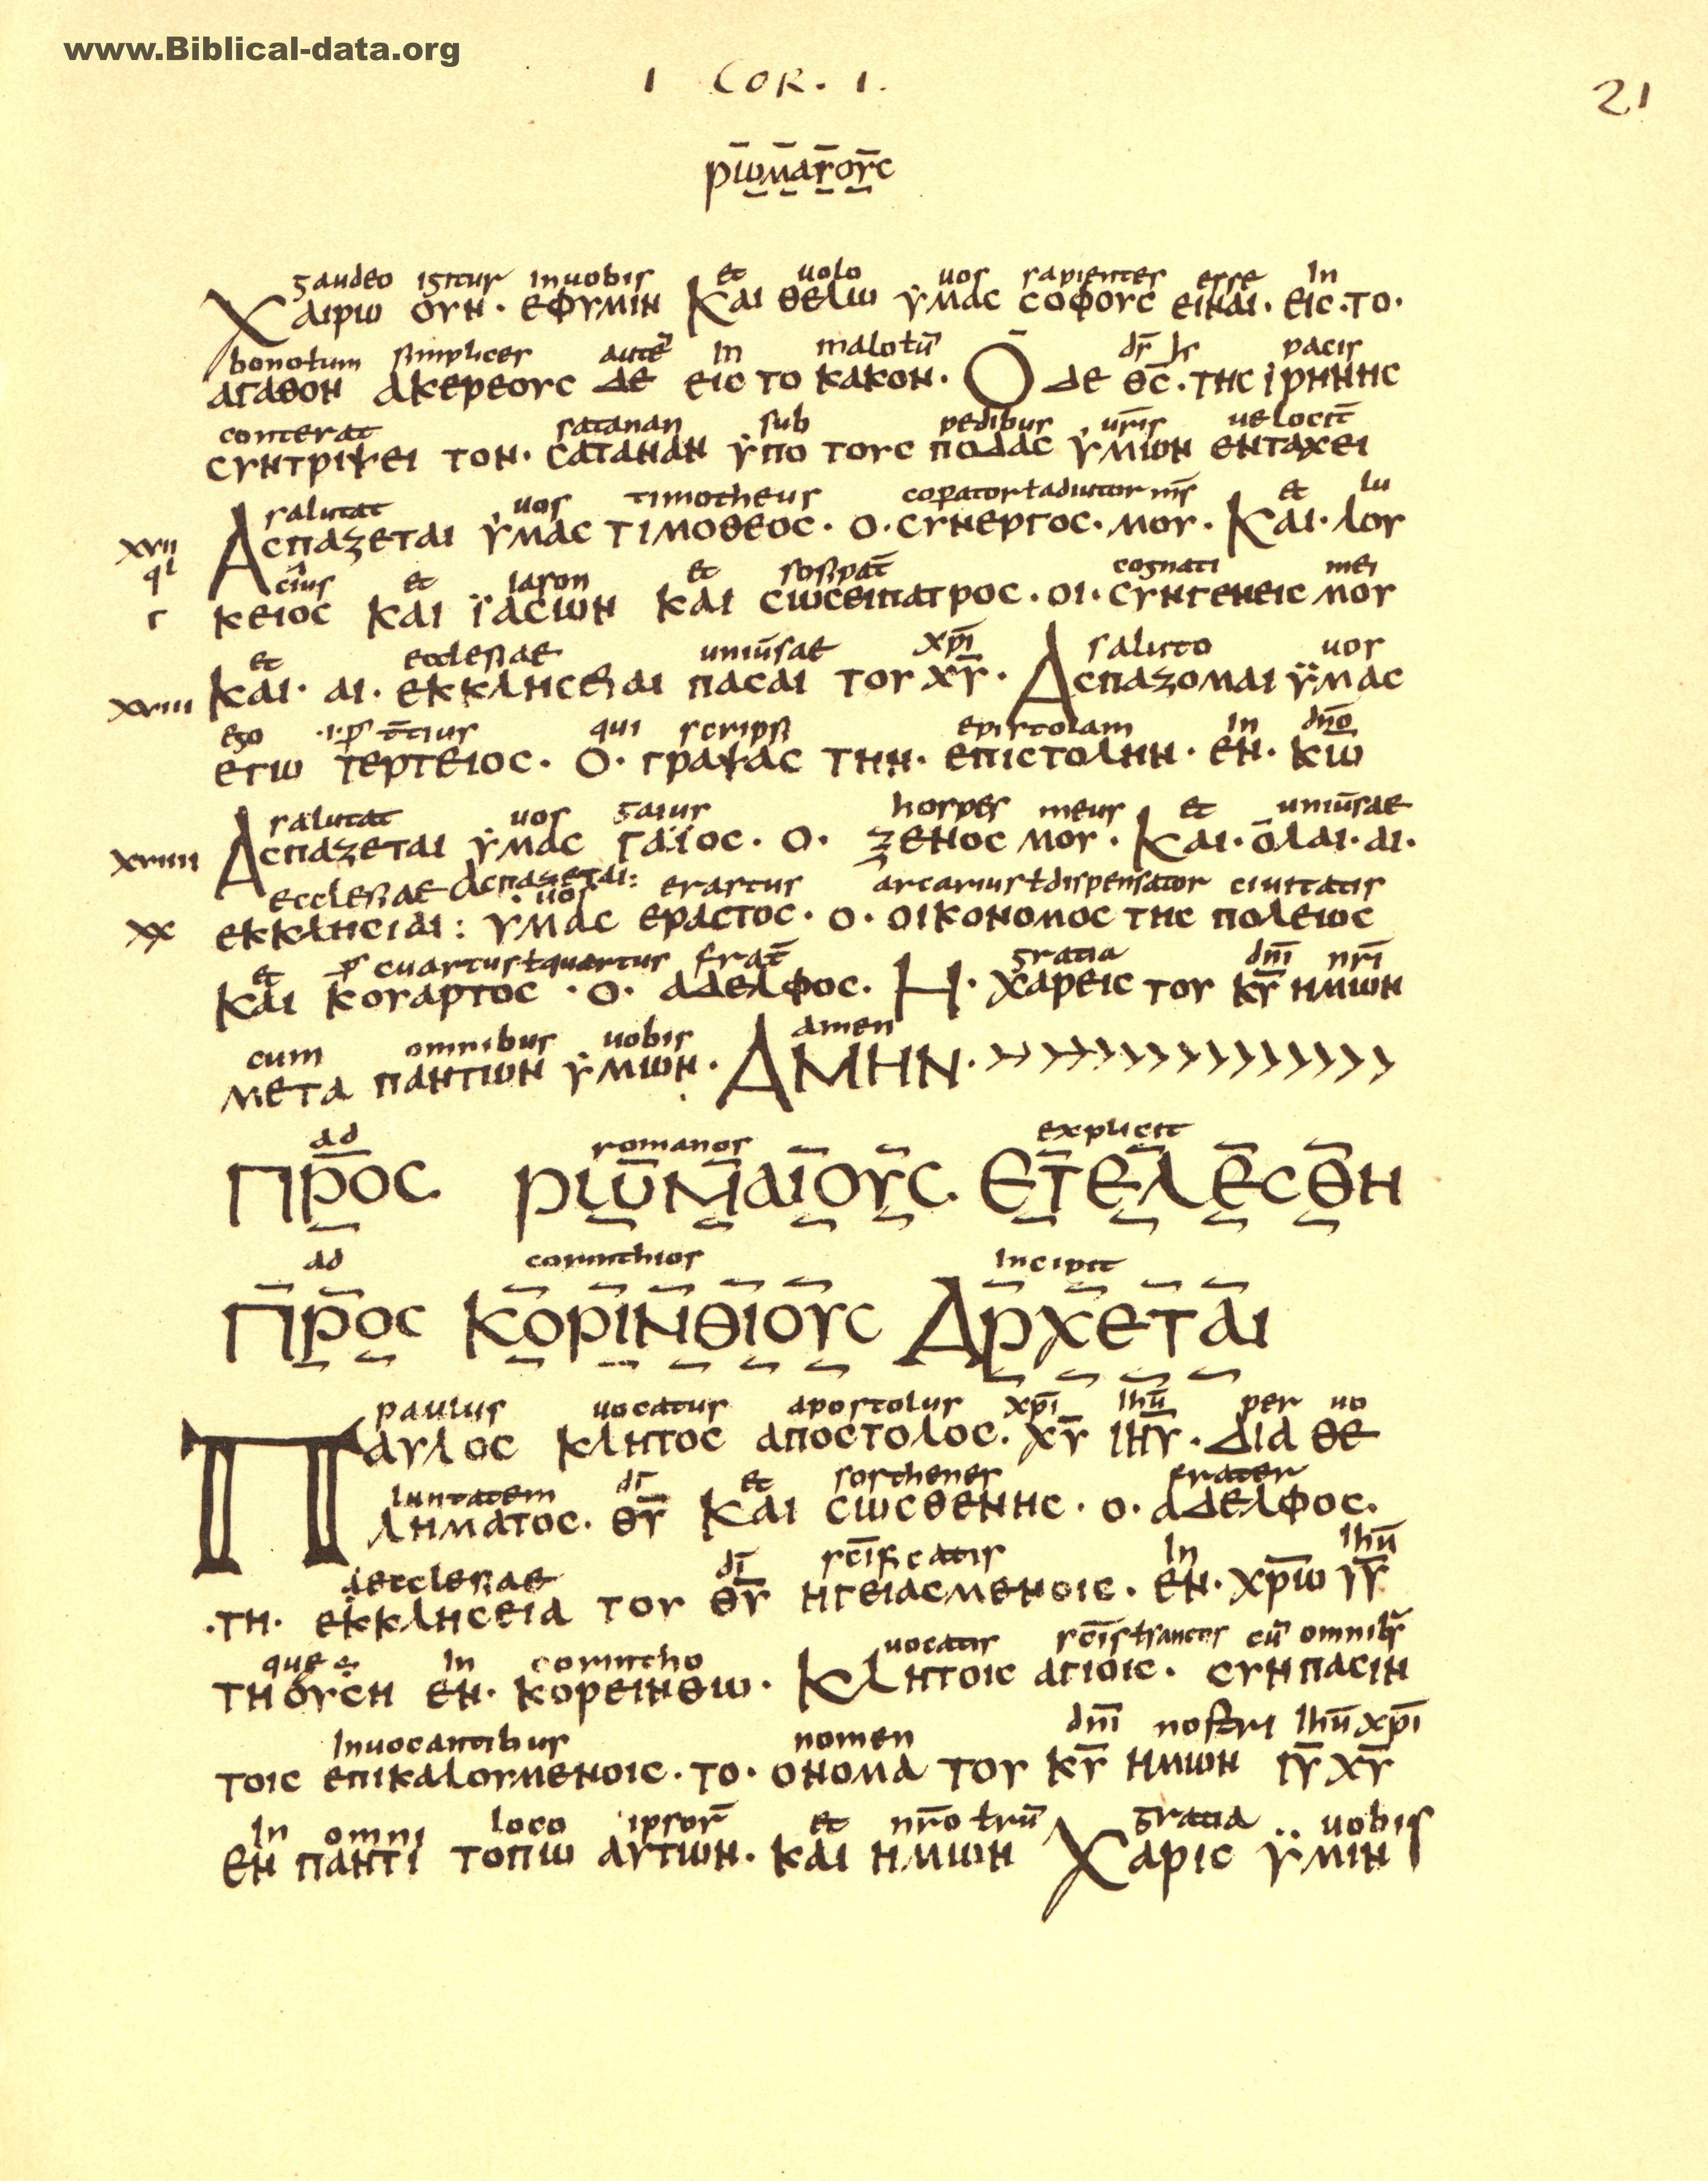 www.Biblical-data.org
1 COR. 1.
21
ρωμαγογς
gaudeo igitur inuobis et uolo uos sapientes esse In
Χαιρω ογν · εφγμιν Και θελω γμας σοφογς ειναι · εις · το ·
bonotum simplices autē In malotū dr̄ pacis
αγαθον ακερεογς δε εις το κακον · Ο δε θς̄ · της ιρηνης
conterat satanan sub pedibus ur̄is uelocit̄
σγντριψει τον · σατανan γπο τογς ποδας γμων ενταχει
salutat uos timotheus et lu
XVII Ασπαζεται γμας τιμοθεος · ο · σγνεργος · μογ · Και · λογ
cius et Iason et sosipat̄ cognati mei
κειος και ϊασων και σωσειπατρος · οι · σγνγενεις μογ
et ecclesiae uniūsae xp̄i saluto uos
XVIII Και · αι · εκκλησειαι πασαι τογ χγ̄ · Ασπαζομαι γ̈μας
ego qui scripsi epistolam In dn̄o
εγω τερτειος · Ο · γραψας την · επιστολην · εν · κω̄
salutat uos gaius hospes meus et uniūsae
XVIIII Ασπαζεται γμας γαϊος · ο · ξενος μογ · Και · ολαι · αι ·
ecclesiae ασπαζεται: uos erastus arcarius ł dispensator ciuitatis
XX εκκλησιαι : γμας εραστος · ο · οικονομος της πολεως
et cuartus ł quartus frat̄ gratia dn̄i nr̄i
Και κογαρτος · ο · αδελφος · Η · χαρεις τογ κγ̄ ημων
cum omnibus uobis amen
μετα παντων γμων · ΑΜΗΝ ·
ad romanos explicit
Προς ρωμαιογς · Ετελεσθη
ad corinthios Incipit
Προς κορινθιογς Αρχεται
paulus uocatus apostolus xp̄i Ihū per uo
Παγλος κλητος αποστολος · χγ̄ ιηγ̄ · δια θε
luntatem dī et sosthenes frater
λημaτος · θγ̄ Και σωσθενης · ο · αδελφος ·
ecclesiae dī sc̄ificatis In Ihū
· τη · εκκλησεια τογ θγ̄ ηγειασμενοις · εν · χρ̄ω ιγ̄
que In corintho uocatis sc̄is ł sanctis cū omnib;
τη ογση εν · κορεινθω · Κλητοις αγιοις · σγν πασιν
Inuocantibus nomen dn̄i nostri Ihū xp̄i
τοις επικαλογμενοις · το · ονομα τογ κγ̄ ημων ιγ̄ χγ̄
In omni loco ipsor̄ et nr̄o łrū gratia uobis
εν παντι τοπω αγτων · και ημων Χαρις γ̈μιν